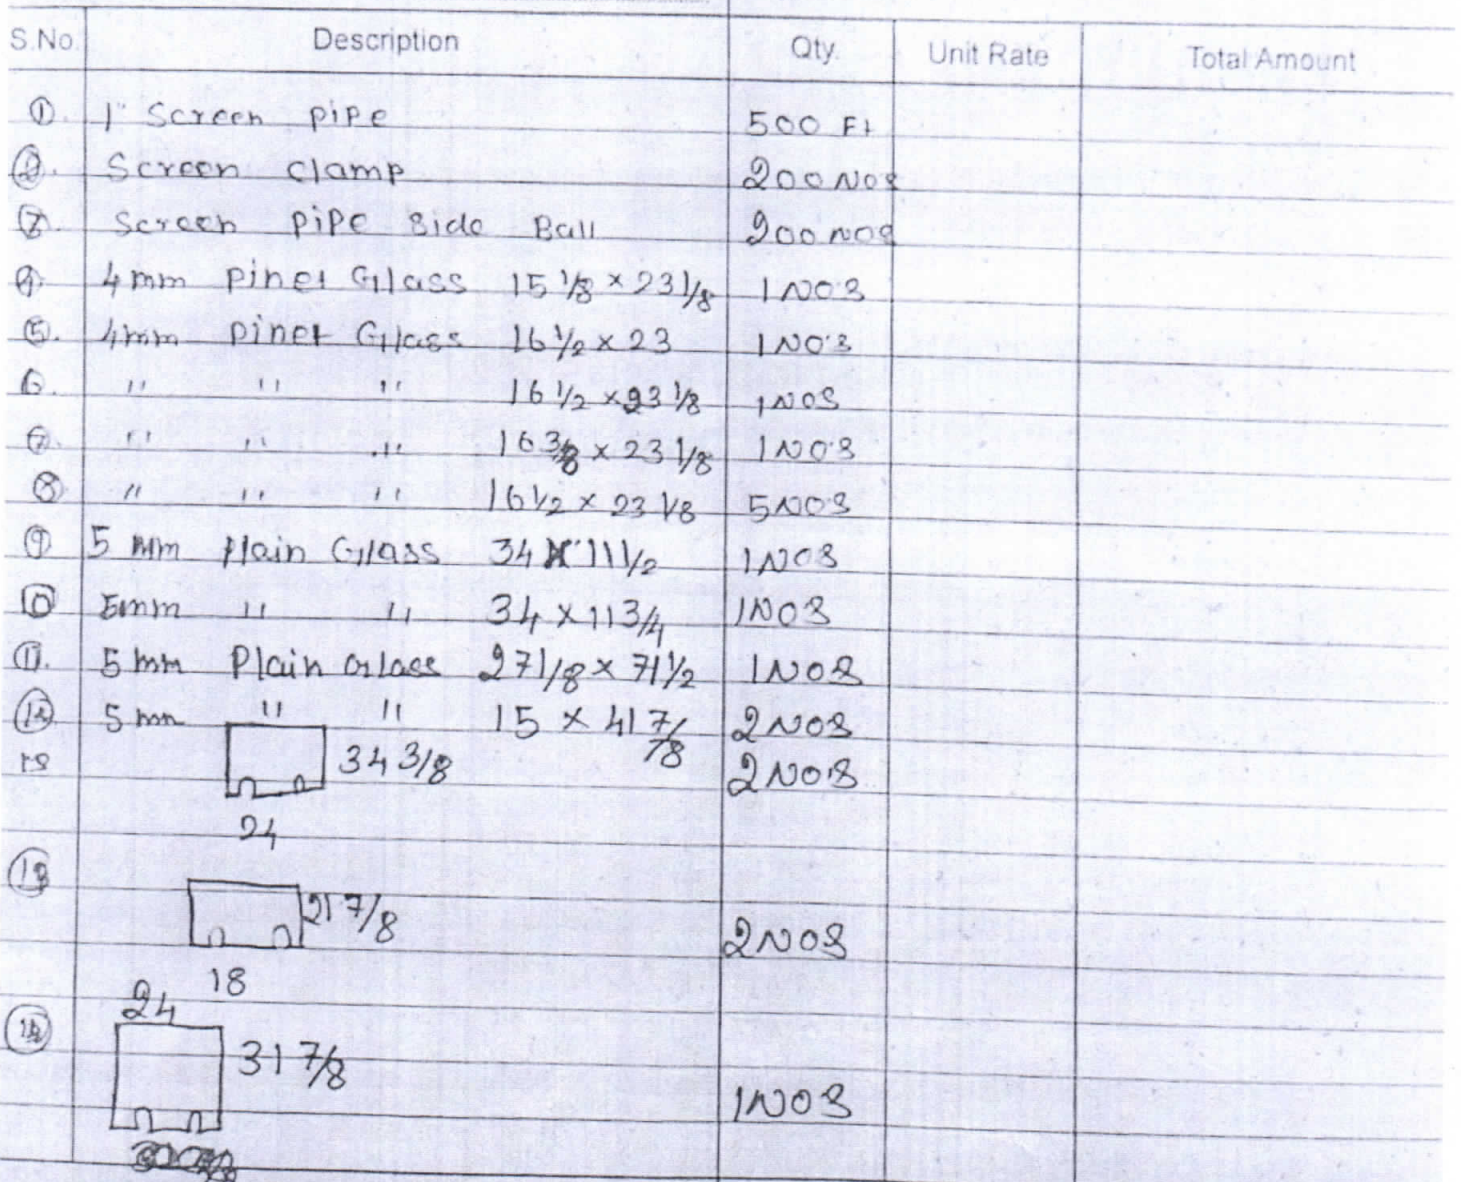 S.No. Description Qty. Unit Rate Total Amount
① 1" Screen PiPe 500 Ft
②. Screen Clamp 200 Nos
③ Screen PiPe Side Ball 200 Nos
④ 4mm Pinet Glass 15 1/8 × 23 1/8 1 Nos
⑤. 4mm Pinet Glass 16 1/2 × 23 1 Nos
⑥. " " " 16 1/2 × 23 1/8 1 Nos
⑦. " " " 16 3/8 × 23 1/8 1 Nos
⑧ " " " 16 1/2 × 23 1/8 5 Nos
⑨ 5 mm Plain Glass 34 × 11 1/2 1 Nos
⑩ 5mm " " 34 × 11 3/4 1 Nos
⑪. 5 mm Plain Glass 27 1/8 × 71 1/2 1 Nos
⑫ 5 mm " " 15 × 41 7/8 2 Nos
13 34 3/8 2 Nos
24
⑬ 21 7/8 2 Nos
18
24
⑭ 31 7/8 1 Nos